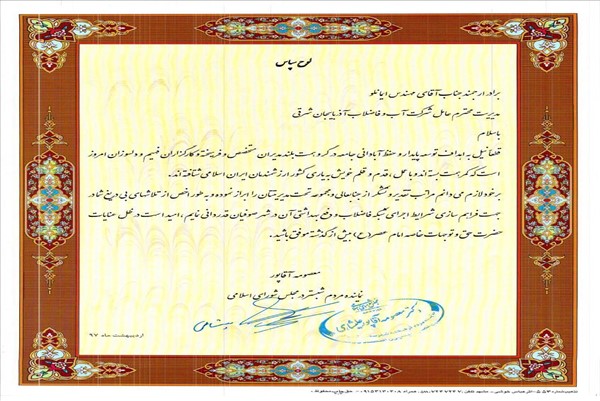 لوح سپاس
برادر ارجمند جناب آقای مهندس ایمانلو
مدیریت محترم عامل شرکت آب و فاضلاب آذربایجان شرقی
باسلام
قطعا نیل به اهداف توسعه پایدار و حفظ آبادانی جامعه در گرو همت بلند مدیران متخصص و فریخته و کارگزاران فهیم و دلسوزان امروز
است که کمر همت بسته اند و با عمل، قدم و قلم خویش به یاری کشور ارزشمندمان ایران اسلامی شتافته اند.
بر خود لازم می دانم مراتب تقدیر و تشکر از جنابعالی و مجموعه تحت مدیریتتان را ابراز نموده و به طور اخص از تلاشهای بی دریغ شما در
جهت فراهم سازی شرایط اجرای شبکه فاضلاب و دفع بهداشتی آن در شهر صوفیان قدردانی نمایم. امید است در ظل عنایات
حضرت حق و توجهات خاصه امام عصر(عج) بیش از گذشته موفق باشید.
معصومه آقاپور
نماینده مردم شبستر در مجلس شورای اسلامی
دکتر معصومه آقاپور علیشاهی
اردیبهشت ماه ۹۷